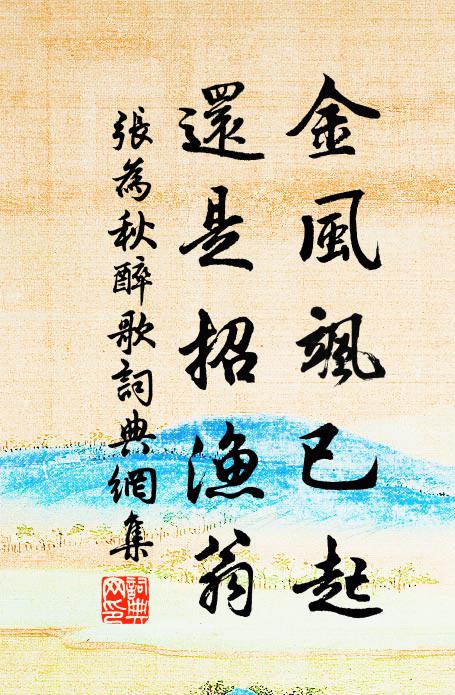 金風颯已起
還是招漁翁
張為秋醉歌詞典網集
詞典
网印